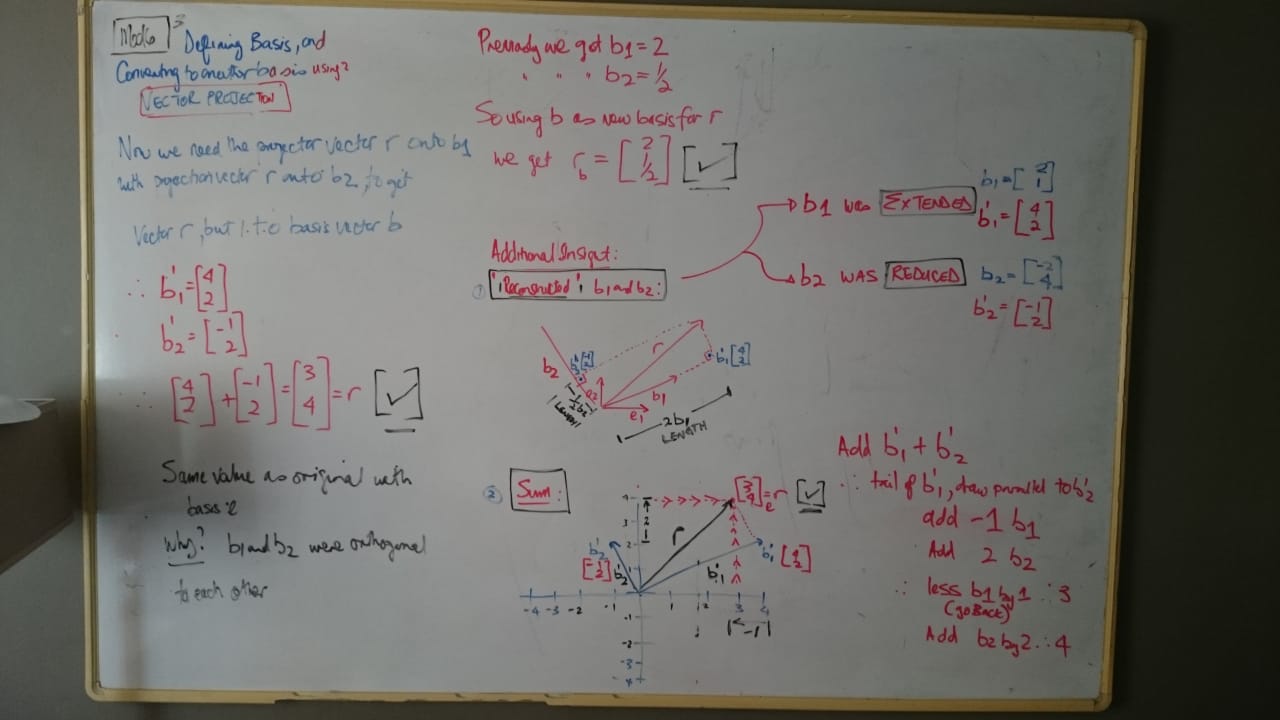 Mod6 3
Defining Basis, and
Converting to another basis using?
VECTOR PROJECTION
Now we need the projector vector r onto b1
with projection vector r onto b2, to get
Vector r, but basis vector b
∴ b'1 = [4 2]
b'2 = [-1 2]
∴ [4 2] + [-1 2] = [3 4] = r [✓]
Same value as original with
basis e
Why? b1 and b2 were orthogonal
to each other
we got b1 = 2
" " " b2 = 1/2
So using b as new basis for r
we get r b = [2 1/2] [✓]
Additional Insight:
① "Reconstructed" b1 and b2:
b1 was EXTENDED
b1 = [2 1]
b'1 = [4 2]
b2 was REDUCED
b2 = [-2 4]
b'2 = [-1 2]
b2
b'2 [-1 2]
r
b'1 [4 2]
b1
e2
e1
1/2 b2
LENGTH
2b1
LENGTH
② Sum:
[3 4]e = r [✓]
4
3
2
1
2
r
b'2
[-1 2]
b'2
b'1
b'1 [4 2]
-4 -3 -2 -1 1 2 3 4
|-1|
-1
-2
-3
-4
Add b'1 + b'2
∴ tail of b'1, draw parallel to b'2
add -1 b1
Add 2 b2
∴ less b1 by 1 ∴ 3
(go Back)
Add b2 by 2 ∴ 4